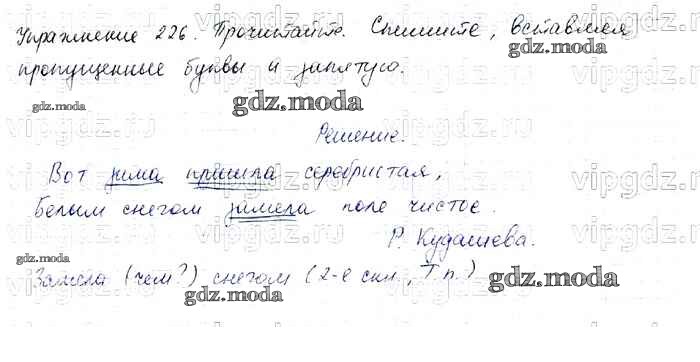 Упражнение 226. Прочитайте. Спишите, вставляя
пропущенные буквы и запятую.
Решение.
Вот зима пришла серебристая,
Белым снегом замела поле чистое.
Р. Кудашева.
Замела (чем?) снегом (2-е скл., Т. п.)
gdz.moda
gdz.moda
gdz.moda
gdz.moda
gdz.moda
gdz.moda
gdz.moda
gdz.moda
vipgdz.ru
vipgdz.ru
vipgdz.ru